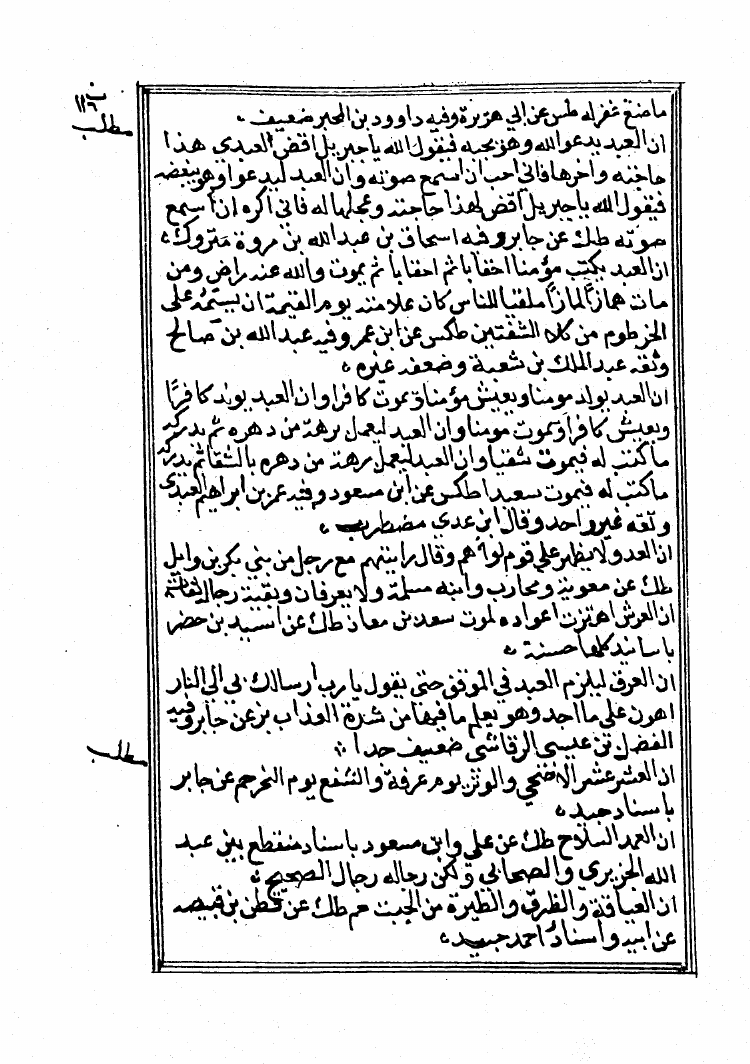 ن
١١٦
مطلب
ما صنع غفر له طس عن ابي هريرة وفيه داوود بن المحبر ضعيف
ان العبد يدعو الله وهو يحبه فيقول الله يا جبريل اقض لعبدي هذا
حاجته واخرها فاني احب ان اسمع صوته وان العبد ليدعوا وهو يبغضه
فيقول الله يا جبريل اقض لهذا حاجته وعجلها له فاني اكره ان اسمع
صوته طك عن جابر وفيه اسحاق بن عبد الله بن مروة متروك
ان العبد يكتب مؤمنا احقابا ثم احقابا ثم يموت والله عند راض ومن
مات همازا لمازا ملقبا للناس كان علامته يوم القيمة ان يسمه على
الخرطوم من كلا الشفتين طكس عن ابن عمر وفيه عبد الله بن صالح
وثقه عبد الملك بن شعبة وضعفه غيره
ان العبد يولد مومنا ويعيش مؤمنا ويموت كافرا وان العبد يولد كافرًا
ويعيش كافرا ويموت مومنا وان العبد ليعمل برهة من دهره ثم يدركه
ما كتب له فيموت شقيا وان العبد ليعمل برهة من دهره بالشقا ثم يدركه
ما كتب له فيموت سعيدا طكس عن ابن مسعود وفيه عمر بن ابراهيم العبدى
وثقه غير واحد وقال ابن عدي مضطرب
ان العدو لا يظهر على قوم لواهم وقال رايتهم مع رجل من بني بكر بن وايل
طك عن معوية ومحارب وابنه مسلمة ولا يعرفان وبقية رجاله ثقات
ان العرش اهتزت اعواده لموت سعد بن معاذ طك عن اسيد بن حضر
باسانيد كلها حسنة
ان العرق ليلزم العبد في الموقف حتى يقول يا رب ارسالك بي الى النار
اهون على ما اجد وهو يعلم ما فيها من شدة العذاب بز عن جابر وفيه
الفضل بن عيسى الرقاشي ضعيف جدا
مطلب
ان العشر عشر الاضحي والوتر يوم عرفة والشفع يوم النحر حم عن جابر
باسناد جيد
ان العمد السلاح طك عن علي وابن مسعود باسناد منقطع بين عبد
الله الجزيري والصحابي ولكن رجاله رجال الصحيح
ان العيافة والطرق والطيرة من الجبت حم طك عن قطن بن قبيصه
عن ابيه واسناد احمد جيد